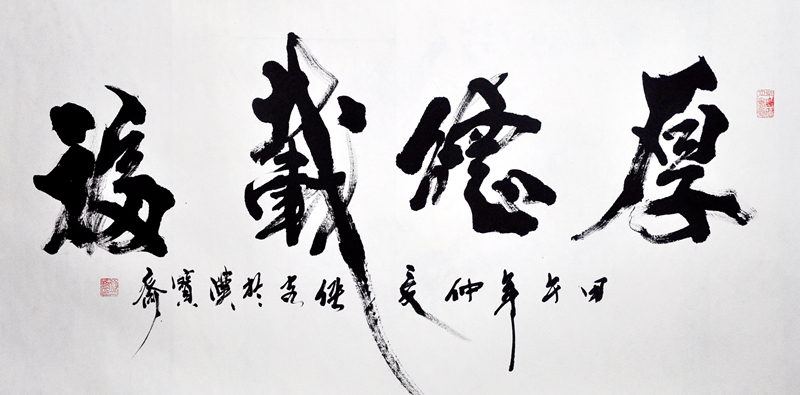 厚德載福
甲午年仲夏於寶齋